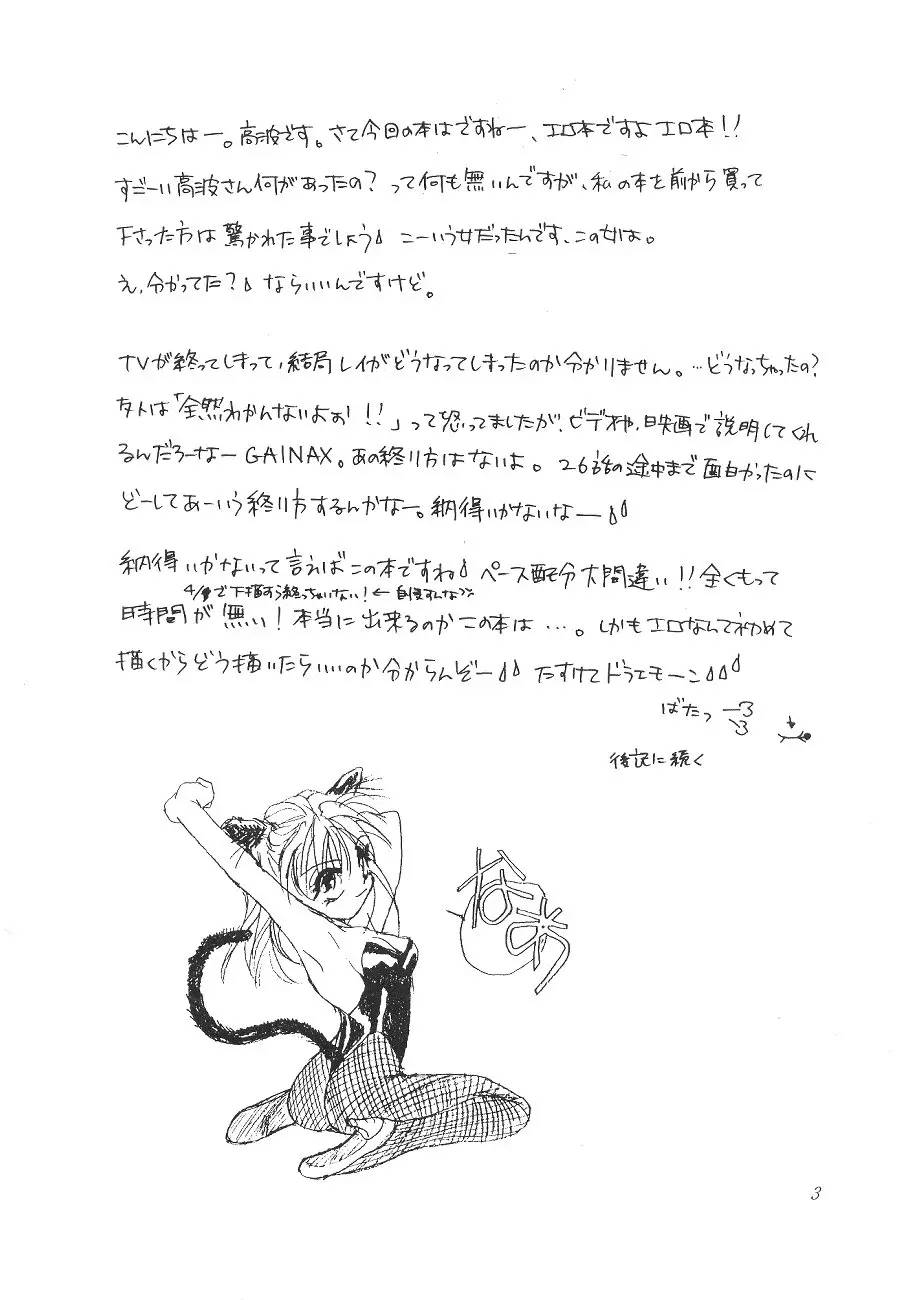 こんにちはー。高波です。さて今回の本はですねー、エロ本ですよエロ本!!
すごーい高波さん何があったの? って何も無いんですが、私の本を前から買って
下さった方は驚かれた事でしょう こーいう女だったんです、この女は。
え、分かってた? ならいいんですけど。
TVが終ってしまって、結局レイがどうなってしまったのか分かりません。…どうなっちゃったの?
友人は「全然わかんないよぉ!!」って怒ってましたが、ビデオや、映画で説明してくれ
るんだろーなーGAINAX。あの終り方はないよ。26話の途中まで面白かったのに
どーしてあーいう終り方するんかなー。納得いかないなー
納得いかないって言えばこの本ですね ペース配分大間違い!!全くもって
で下描すら終っちゃいない!← 自慢すんな
時間が無い!本当に出来るのかこの本は…。しかもエロなんて初めて
描くからどう描いたらいいのか分からんぞー たすけてドラエモーン
ばたっ
後記に続く
なあ
3